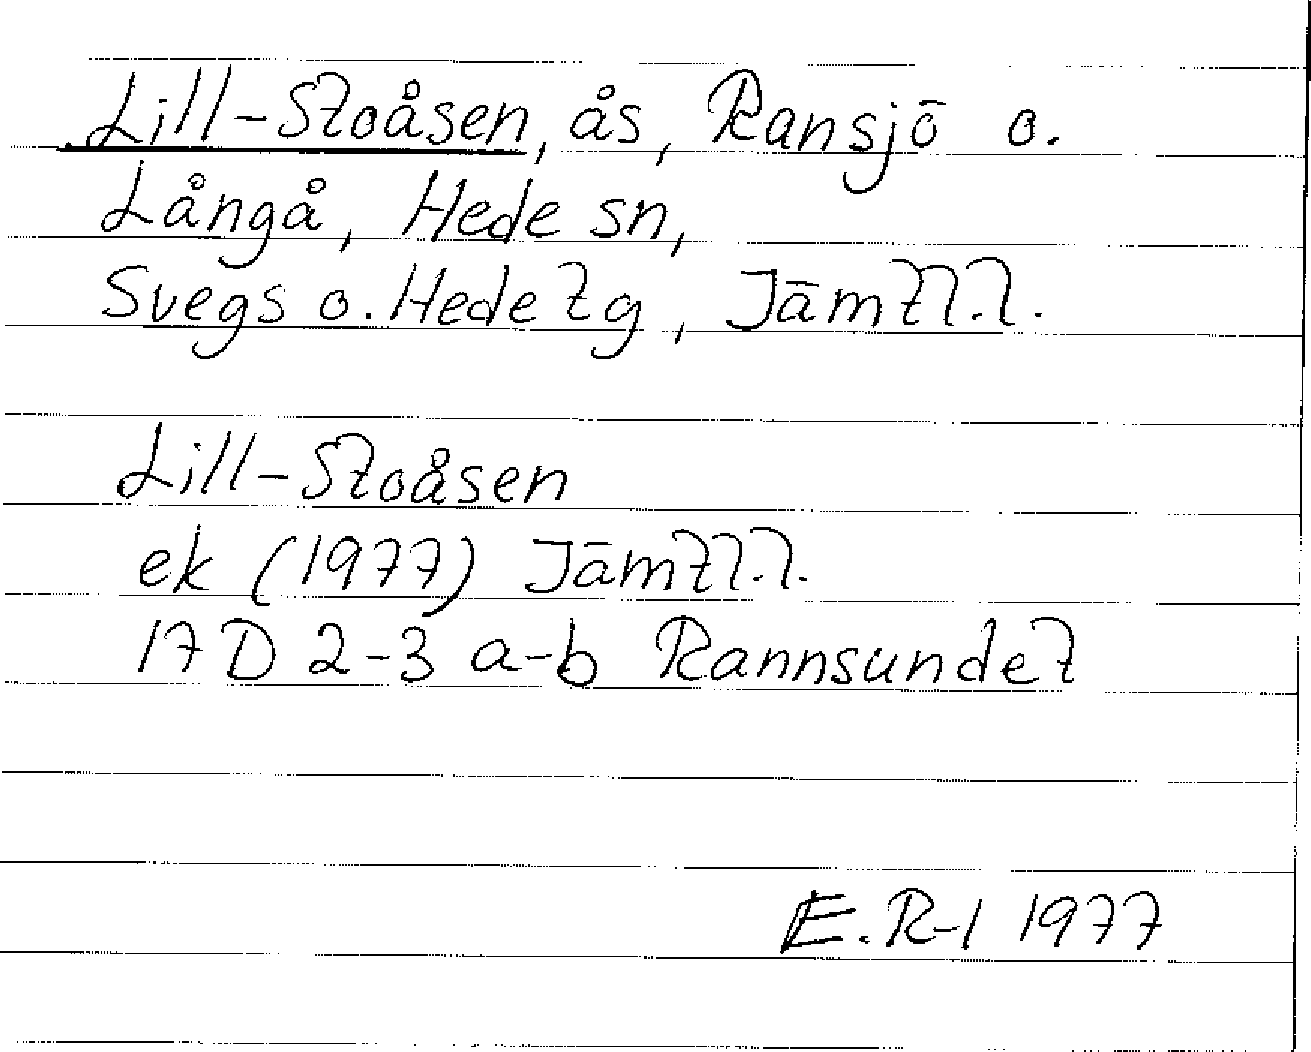 Lill-Stoåsen, ås, Ransjö o.
Långå, Hede sn,
Svegs o. Hede tg, Jämtl.l.
Lill-Stoåsen
ek (1977) Jämtl.l.
17 D 2-3 a-b Rannsundet
E.R-l 1977